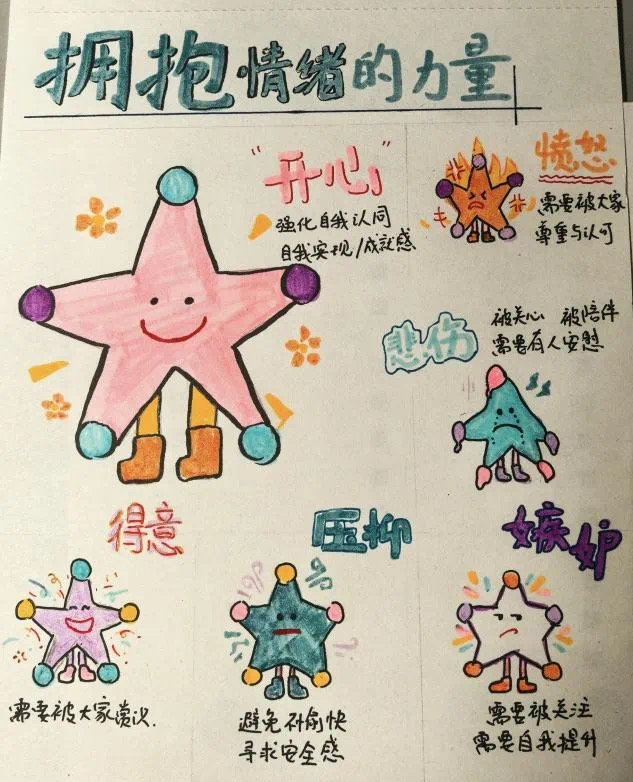 拥抱情绪的力量
"开心"
强化自我认同
自我实现/成就感
愤怒
需要被大家
尊重与认可
悲伤
被关心 被陪伴
需要有人安慰
得意
需要被大家赏识.
压抑
避免不愉快
寻求安全感
嫉妒
需要被关注
需要自我提升